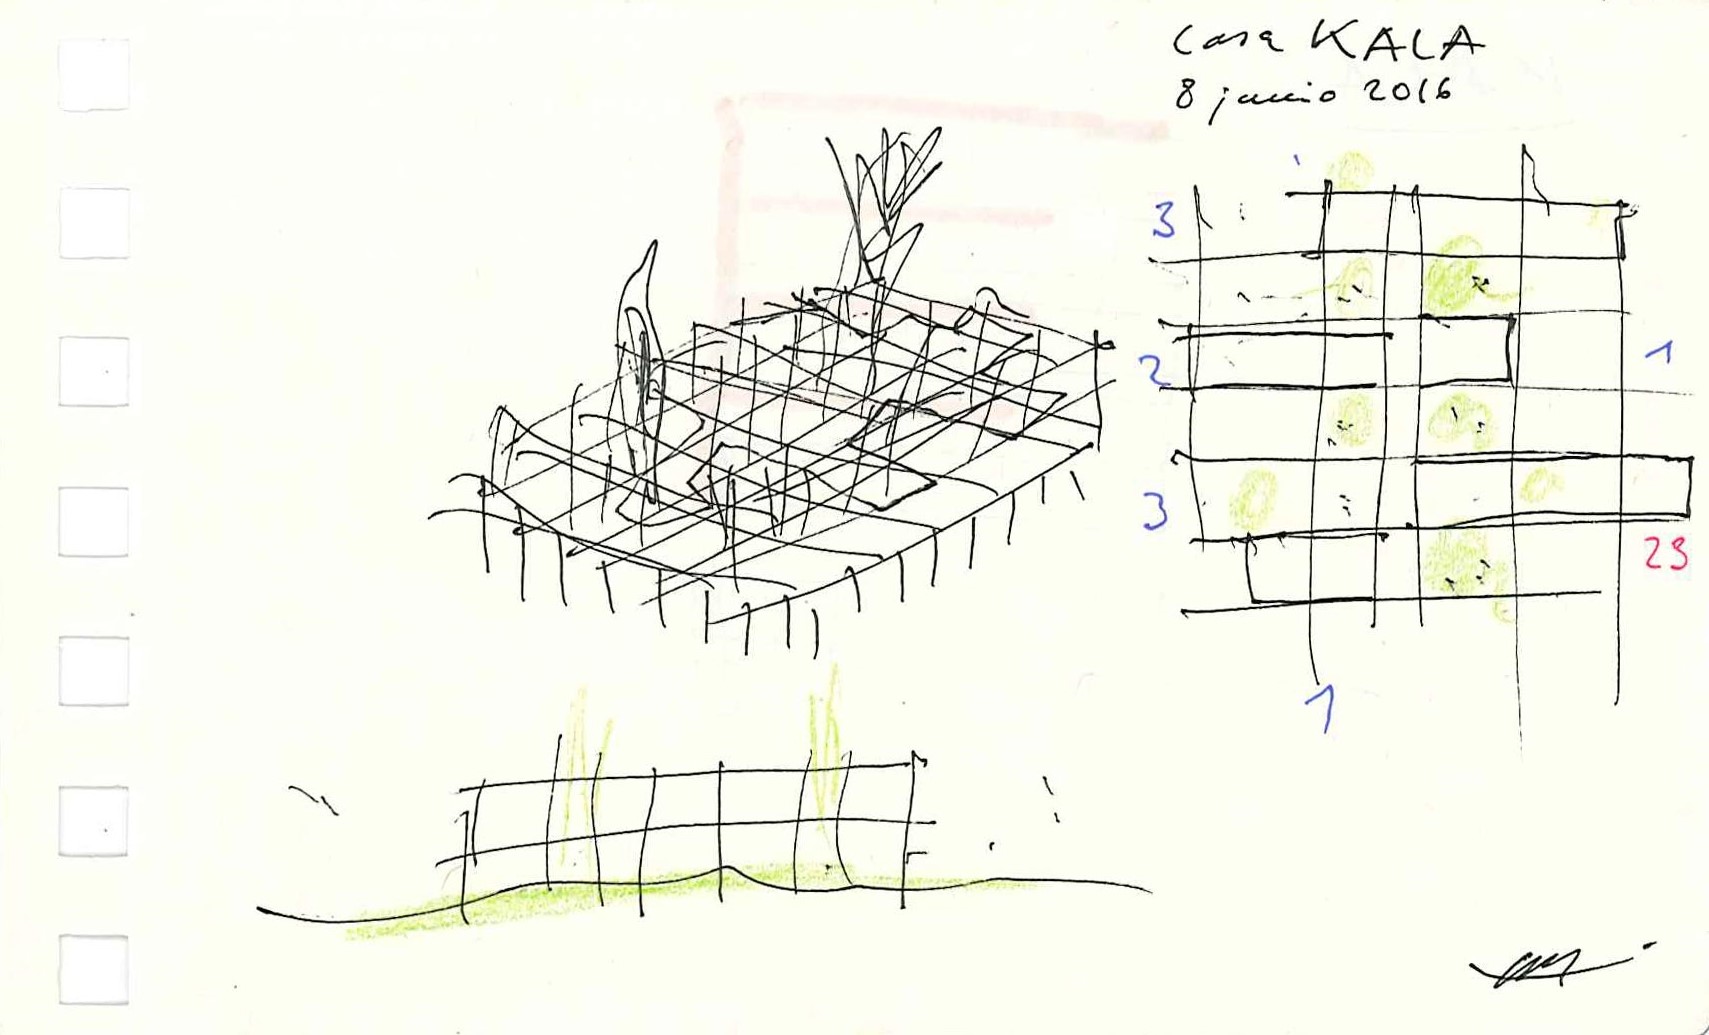 casa KALA
8 junio 2016
3
2
1
3
23
1